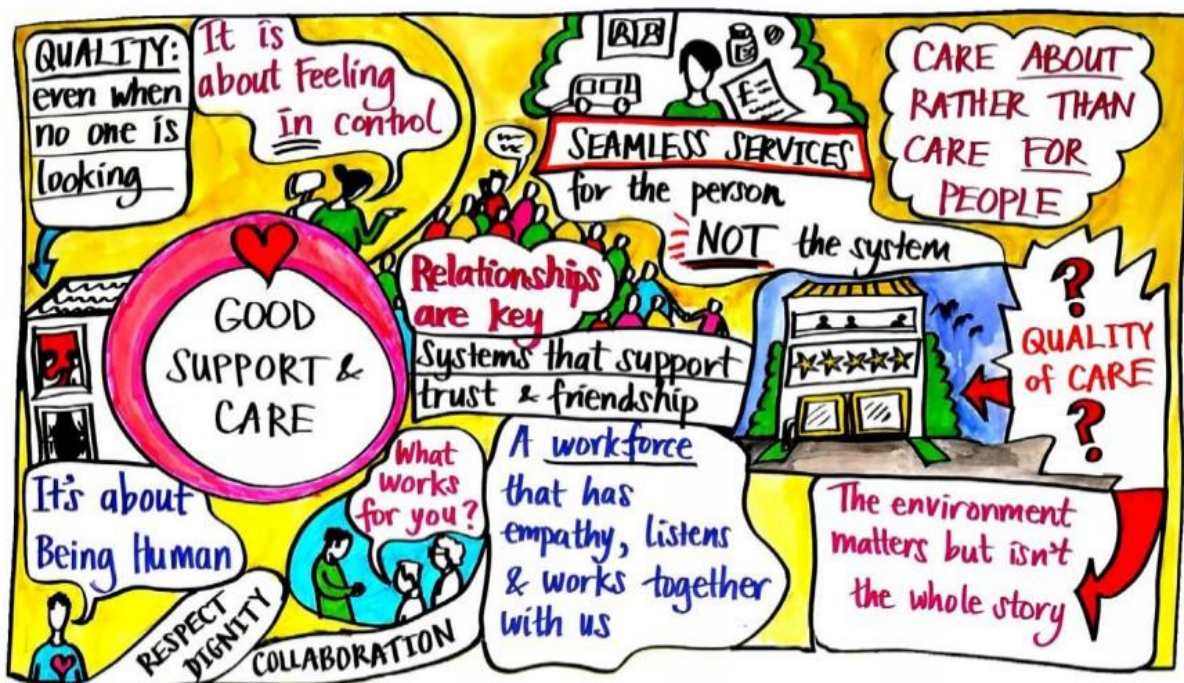 QUALITY:
even when
no one is
looking
It is
about Feeling
in control
SEAMLESS SERVICES
for the person
NOT the system
CARE ABOUT
RATHER THAN
CARE FOR
PEOPLE
GOOD
SUPPORT &
CARE
Relationships
are key
Systems that support
trust & friendship
? 
QUALITY
of CARE
?
It's about
Being Human
RESPECT
DIGNITY
COLLABORATION
What
works
for you?
A workforce
that has
empathy, listens
& works together
with us
The environment
matters but isn't
the whole story